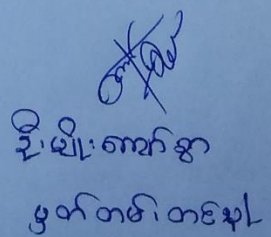 ဦးမျိုးကျော်စွာ
မှတ်တမ်းတင်မှူး